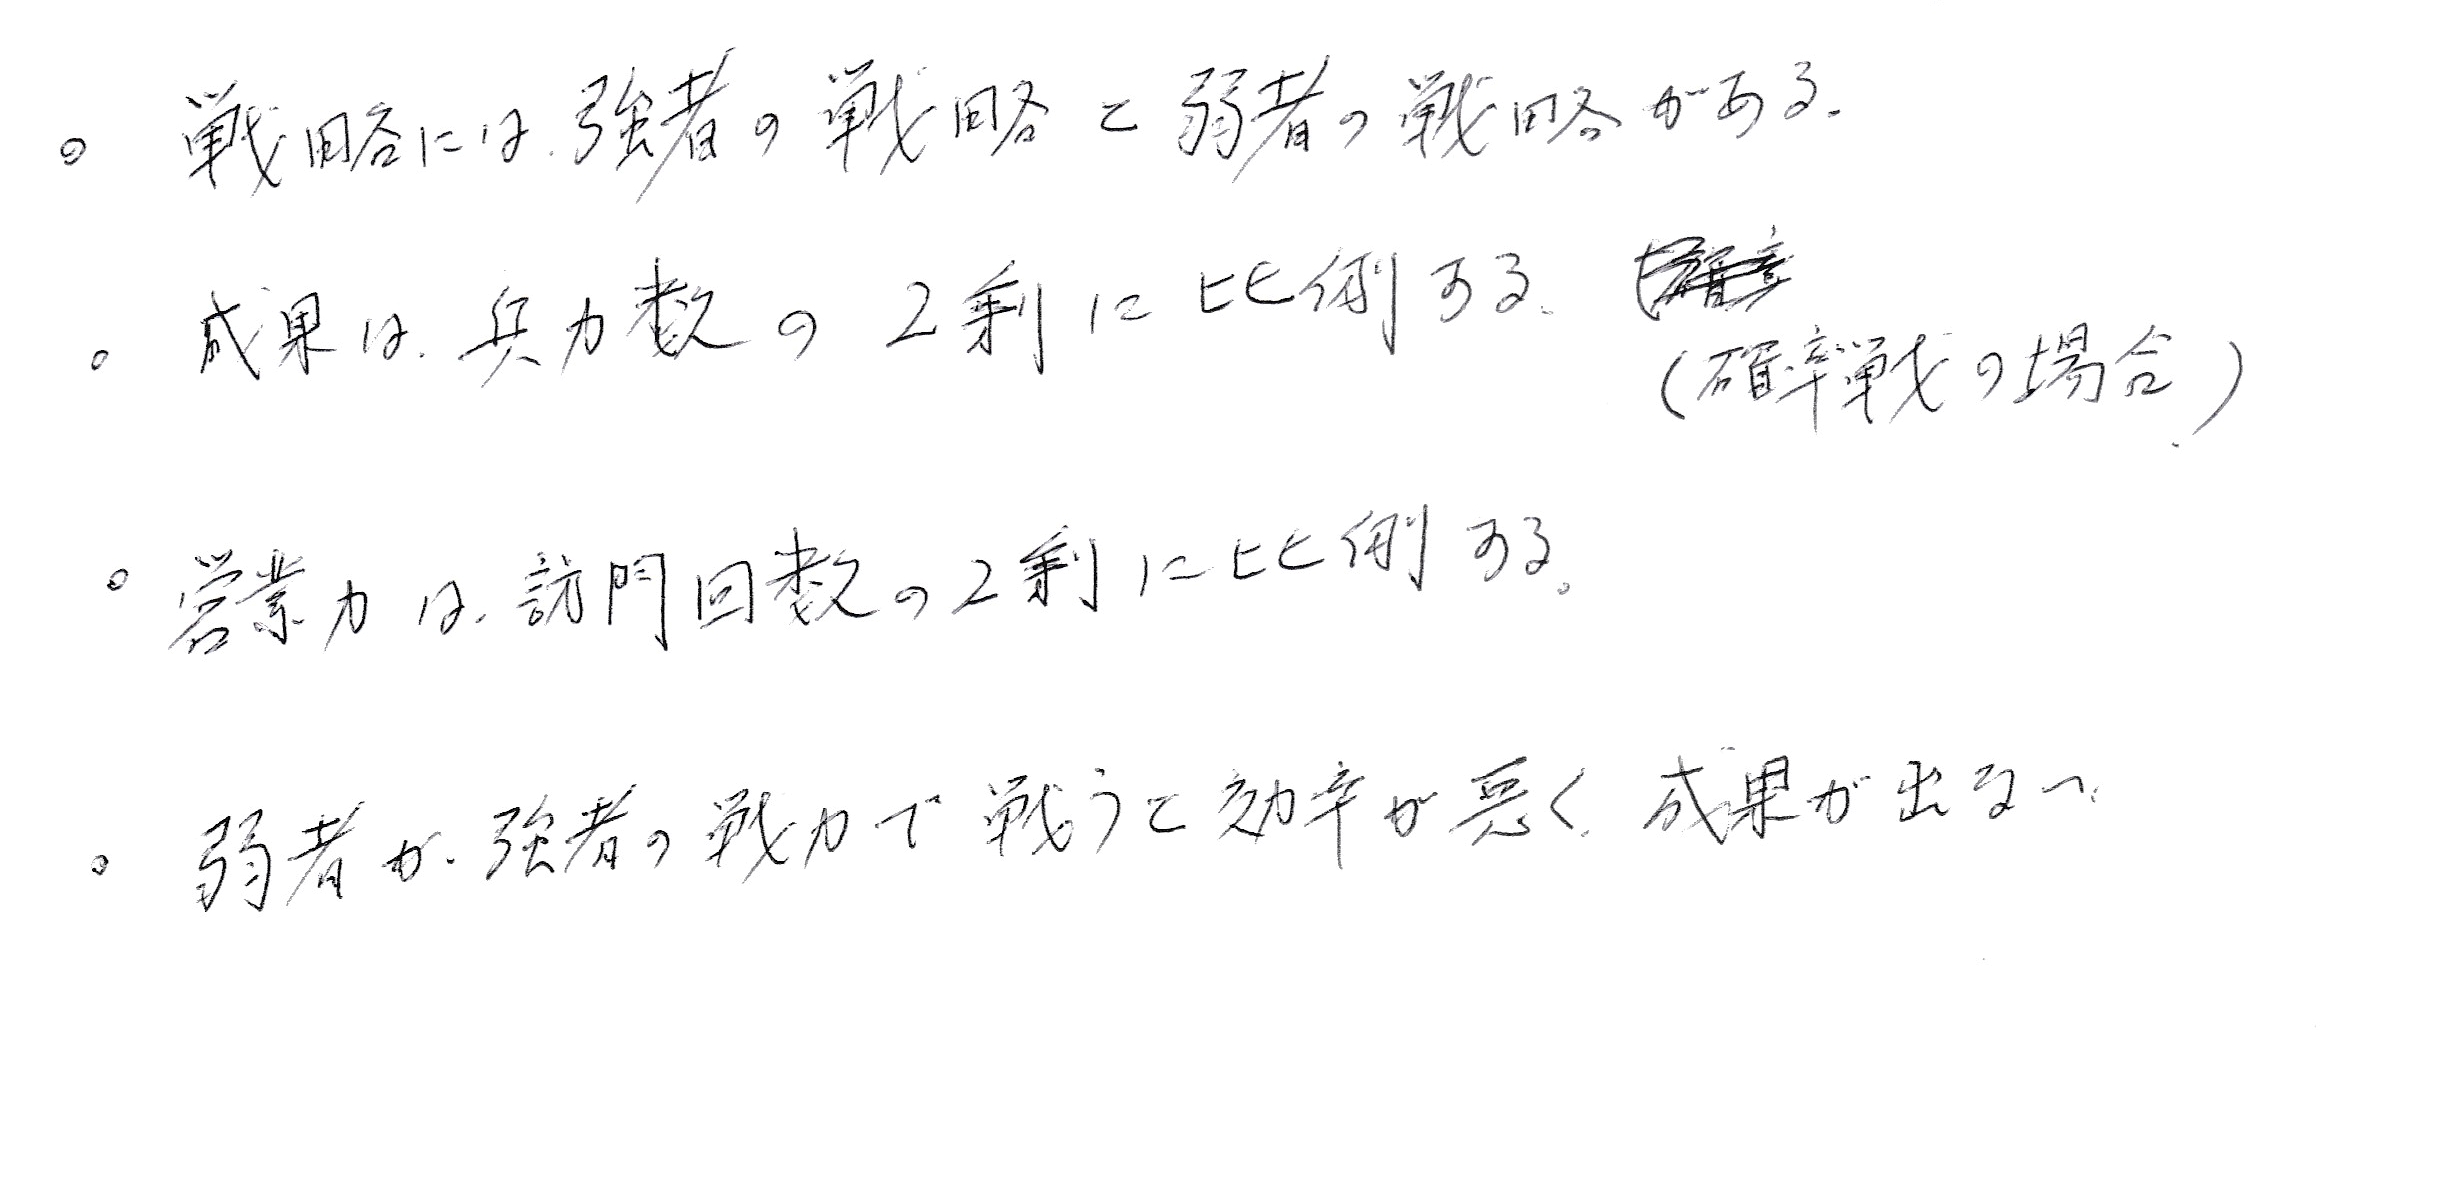 。戦略には、強者の戦略と弱者の戦略がある。
。成果は、兵力数の2剰に比例する。
(確率戦の場合)
。営業力は、訪問回数の2剰に比例する。
。弱者が、強者の戦力で戦うと効率が悪く、成果が出ない。